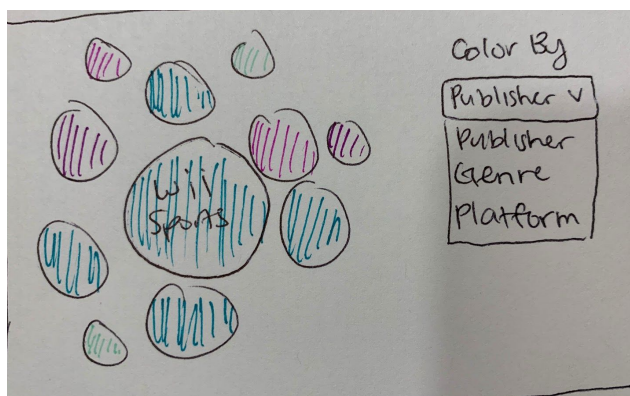 Wii
Sports
Color By
Publisher v
Publisher
Genre
Platform